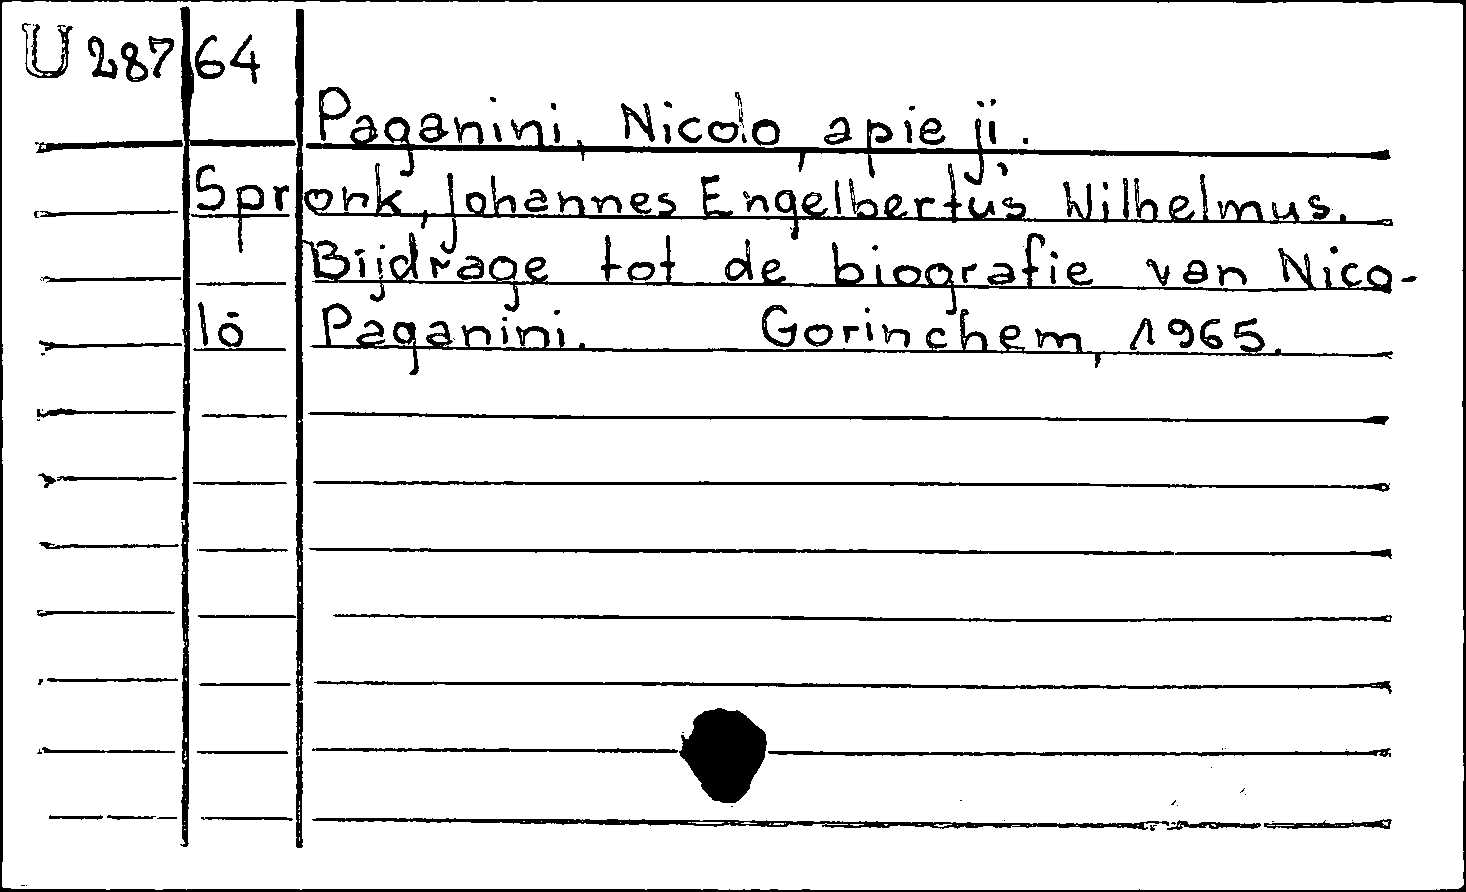 U 287 64
Paganini, Nicolo, apie ji.
Spronk, Johannes Engelbertus Wilhelmus.
Bijdrage tot de biografie van Nico-
lò Paganini. Gorinchem, 1965.